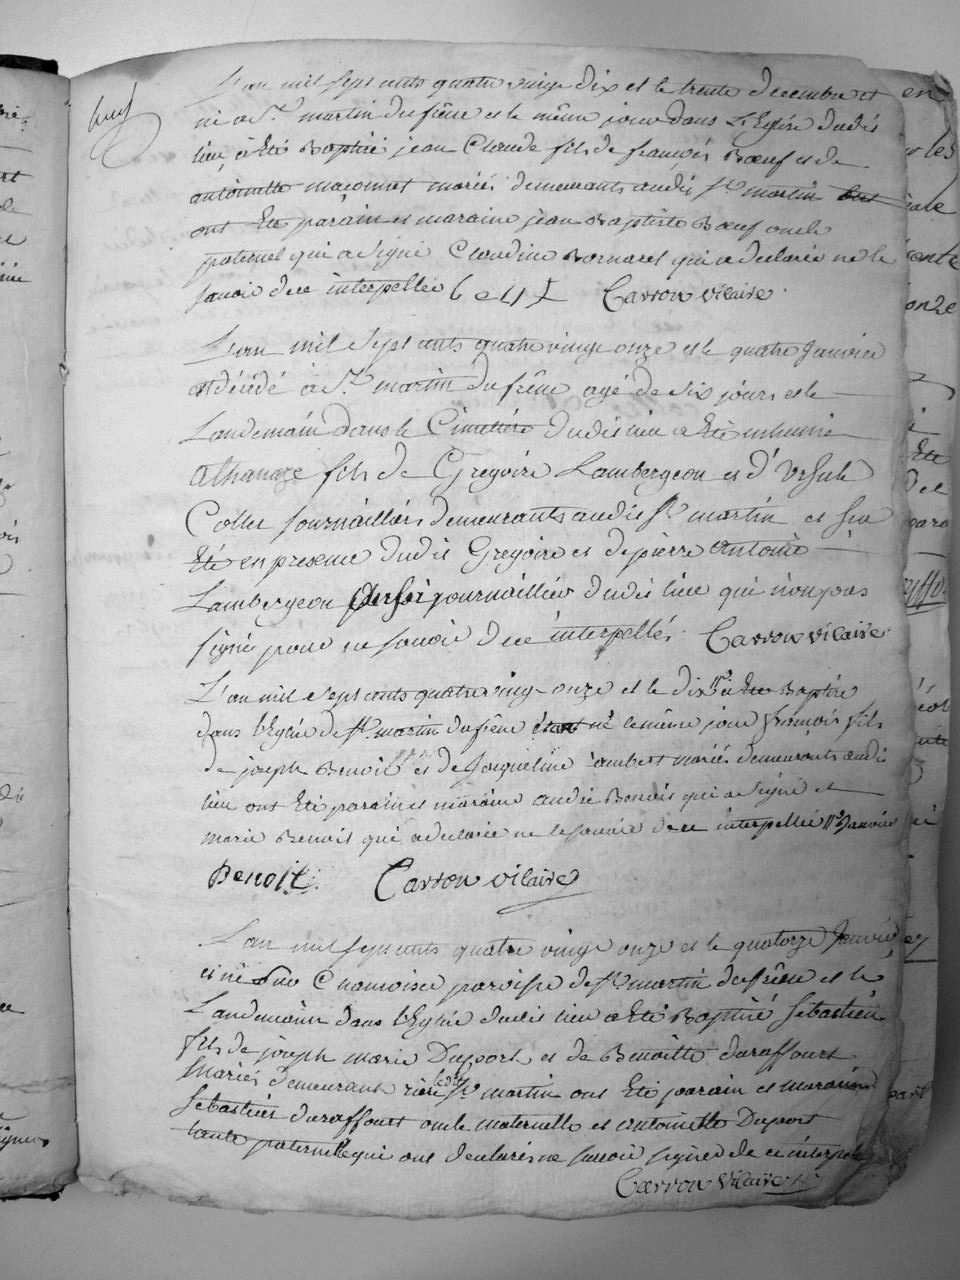 L'an mil sept cents quatre vingt dix et le trente decembre est
né a St martin du frêne et le même jour dans L'Eglise dudit
lieu a Eté Baptisé jean Claude fils de françois Bœuf et de
antoinette maconnet mariés demeurants audit St martin
ont Eté parain et maraine jean Baptiste Bœuf oncle
paternel qui a signé Claudine Bornarel qui a declarée ne le
savoir de ce interpellée Carron vicaire
L'an mil sept cents quatre vingt onze et le quatre Janvier
est décédé à St martin du frêne agé de six jours et le
Landemain dans le Cimetière dudit lieu a Eté inhumé
athanaze fils de Gregoire Lambergeon et d'Ursule
Collet journailliers demeurants audit St martin et fut
Eté en presence dudit Gregoire et de pierre antoine
Lambergeon journaillier dudit lieu qui n'ont pas
signé pour ne savoir de ce interpellés Carron vicaire
L'an mil sept cents quatre vingt onze et le dix a Eté Baptisé
dans l'Eglise de St martin du frêne né le même jour françois fils
de joseph Benoit et de jacqueline jambert mariés demeurants audit
lieu ont Eté parain et maraine andré Benoit qui a signé et
marie Benoit qui a declarée ne le savoir de ce interpellée Janvier
Benoit Carron vicaire
L'an mil sept cents quatre vingt onze et le quatorze Janvier
est né Chamoise paroisse de St martin du frêne et le
Landemain dans l'Eglise dudit lieu a Eté Baptisé Sebastien
fils de joseph marie Duport et de Benoitte duraffourt
Mariés demeurant rière ledit St martin ont Eté parain et maraine
Sebastien duraffourt oncle maternelle et antoinette Duport
tante paternelle qui ont declarés ne savoir signer de ce interpelés
Carron vicaire